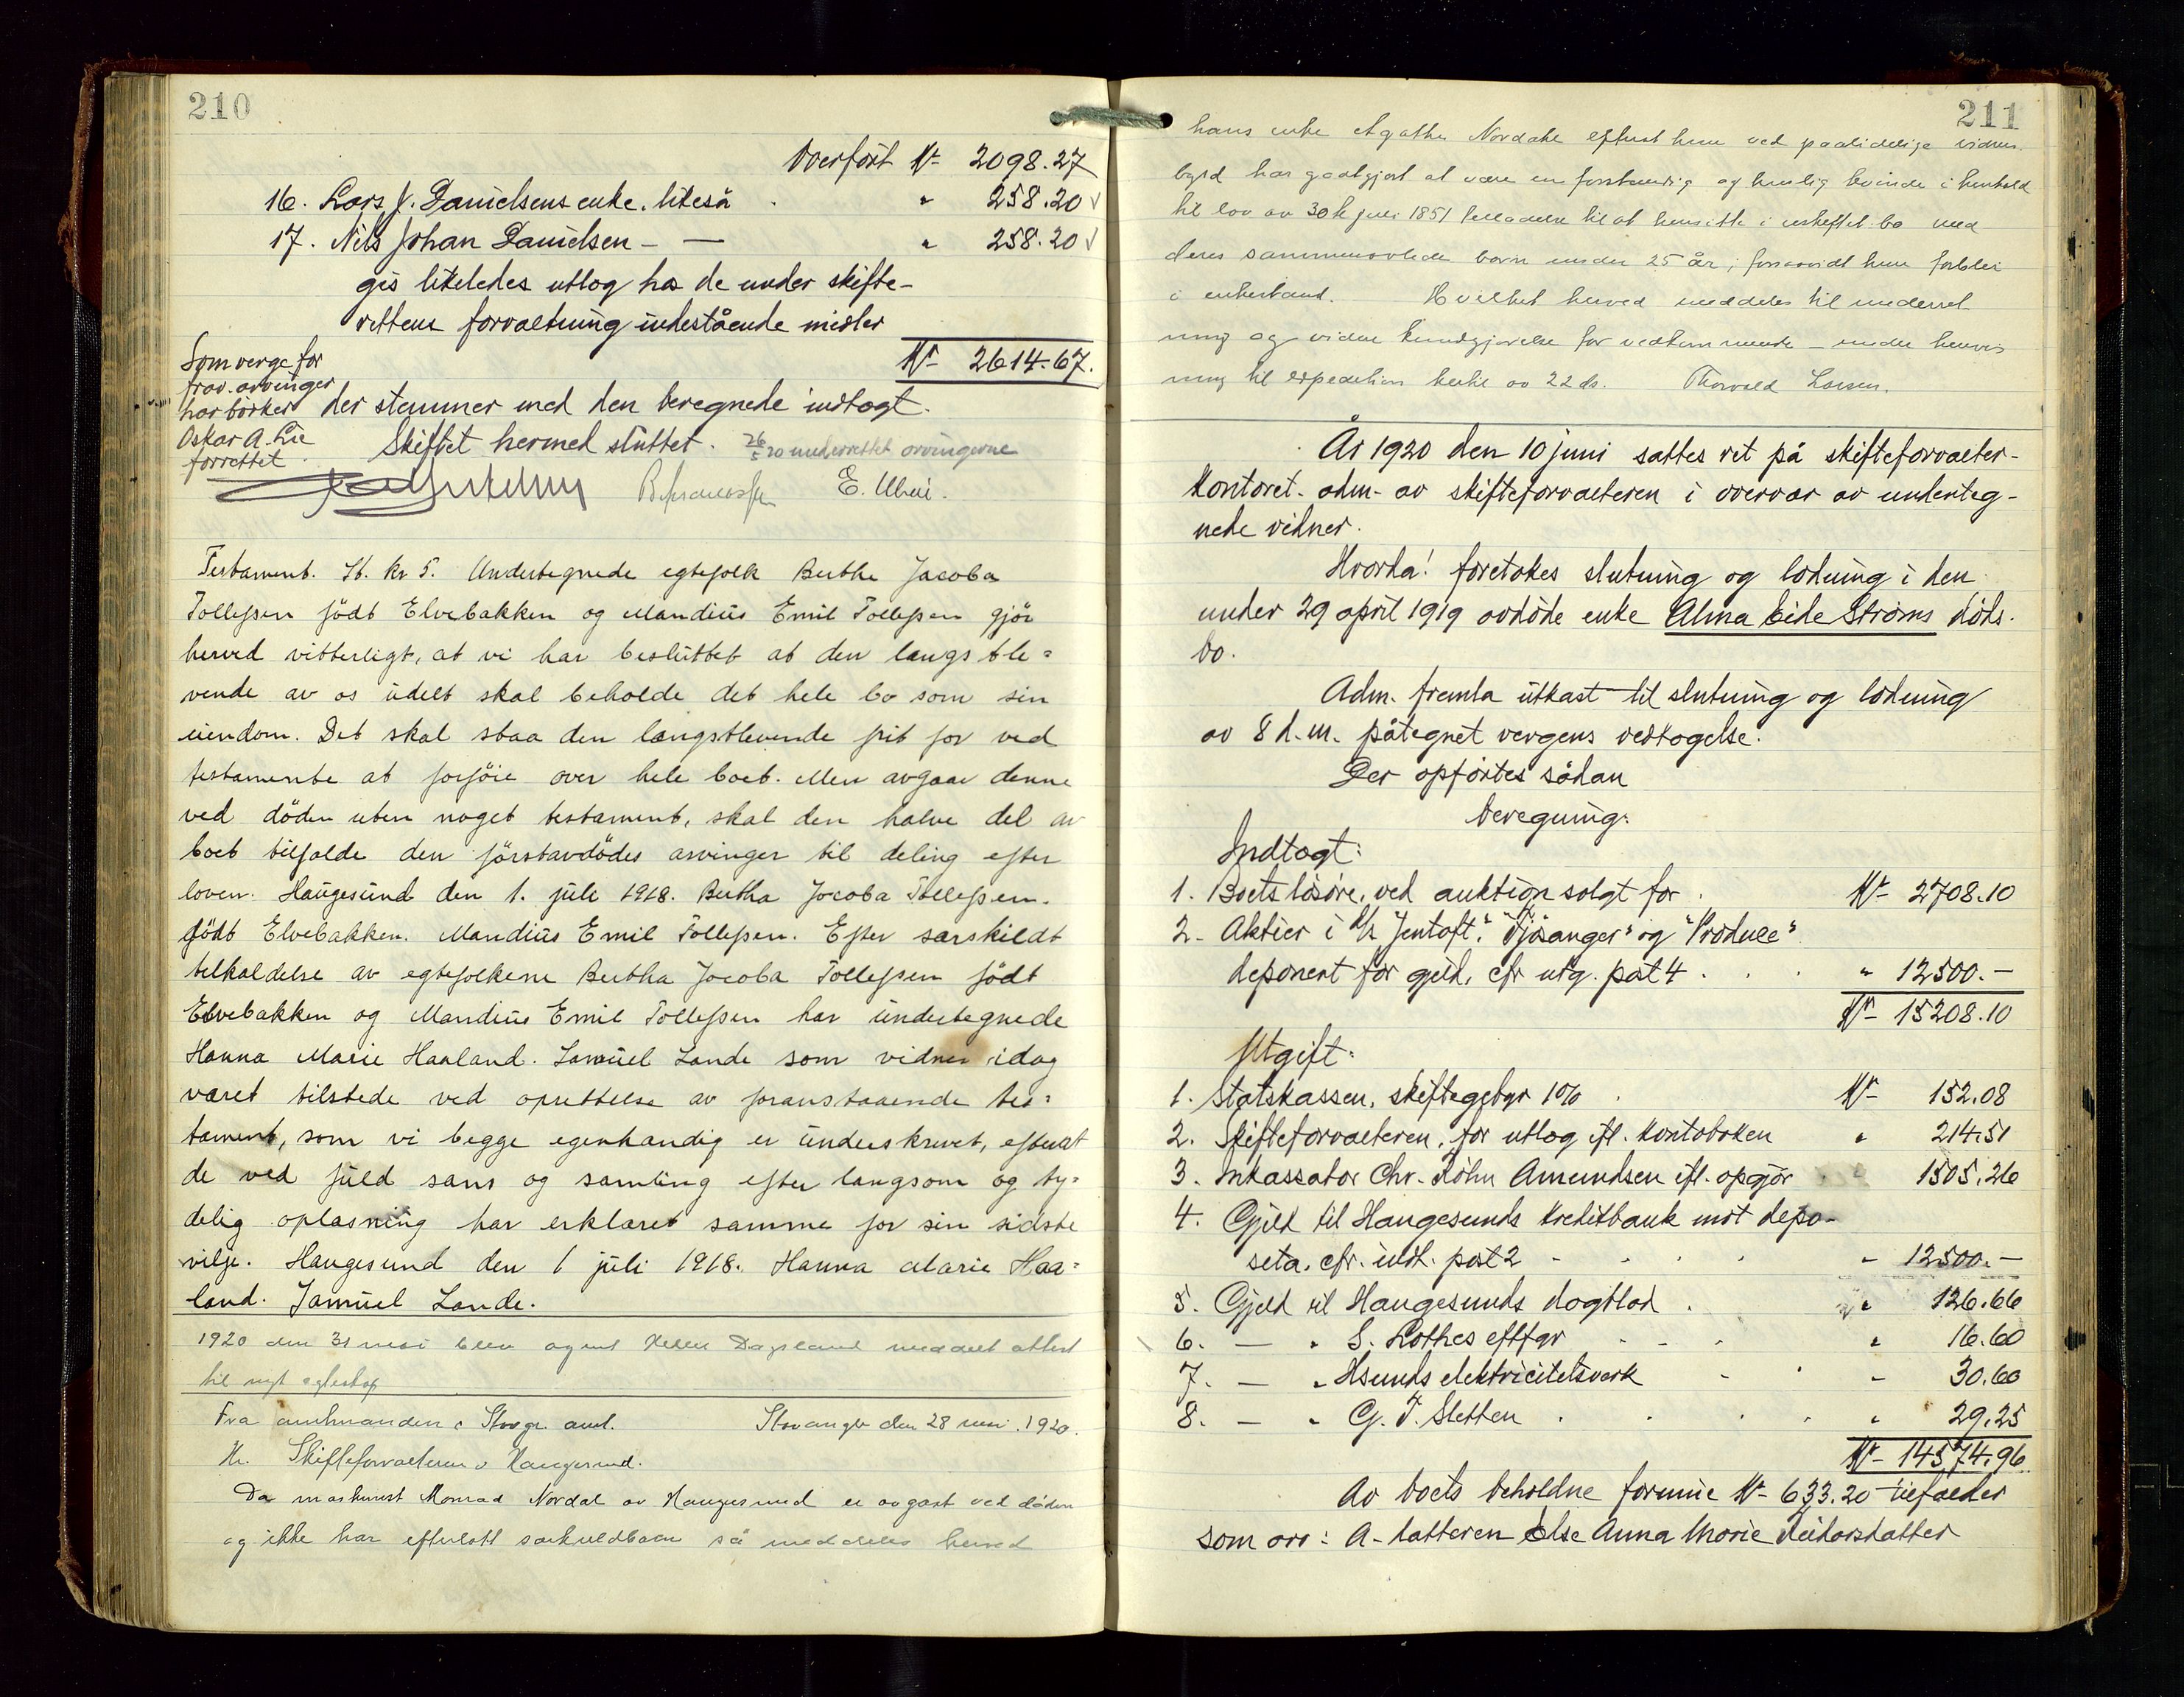 210
Overført Kr 2098.27
16. Lars J. Danielsens enke, likeså " 258.20
17. Nils Johan Danielsen — — " 258.20
gis likeledes utlog hos de under skifte-
rettens forvaltning indestående midler
Kr 2614.67.
Som verge for
frav. arvinger
har
Oskar A. Lie
forrettet
der stemmer med den beregnede indtægt.
Skiftet hermed sluttet. 26/5 20 underrettet arvingerne
Testament. St. kr 5. Undertegnede egtefolk Berthe Jacoba
Tollefsen födt Elvebakken og Mandius Emil Tollefsen gjör
herved vitterligt, at vi har besluttet at den langstle=
vende av os udelt skal beholde det hele bo som sin
eiendom. Det skal staa den længstlevende frit for ved
testamente at forföie over hele boet. Men avgaar denne
ved döden uten noget testament, skal den halve del av
boet tilfalde den förstavdödes arvinger til deling efter
loven. Haugesund den 1. juli 1918. Bertha Jacoba Tollefsen.
födt Elvebakken. Mandius Emil Tollefsen. Efter særskildt
tilkaldelse av egtefolkene Bertha Jacoba Tollefsen födt
Elvebakken og Mandius Emil Tollefsen har undertegnede
Hanna Marie Haaland. Samuel Lande som vidner idag
været tilstede ved oprettelse av foranstaaende tes=
tament, som vi begge egenhændig er underskrevet, efterat
de ved fuld sans og samling efter langsom og ty=
delig oplæsning har erklæret samme for sin sidste
vilje. Haugesund den 1 juli 1918. Hanna Marie Haa=
land. Samuel Lande.
1920 den 31 mai blev agent Dagsland meddelt attest
til nyt egteskap
Fra amtmanden i Stavgr. amt. Stavanger den 28 mai 1920.
Hr. Skifteforvalteren i Haugesund.
Da maskinist Monrad Nordal av Haugesund er avgaat ved döden
og ikke har efterlatt særkuldbarn så meddeles herved
211
hans enke Agathe Nordahl efterat hun ved paalidelige vidnes-
byrd har godtgjort at være en forstandig og huslig kvinde i henhold
til lov av 30te juli 1851 tilladelse til at hensitte i uskiftet bo med
deres sammenavlede barn under 25 år, forsaavidt hun forblir
i enkestand. Hvilket herved meddeles til underret-
ning og videre kundgjørelse for vedkommende — under henvis
ning til expedition hertil av 22 ds. Thorvald Larsen.
År 1920 den 10 juni sattes ret på skifteforvalter-
kontoret. adm. av skifteforvalteren i overvær av underteg-
nede vidner.
Hvorda! foretokes slutning og lodning i den
under 29 april 1919 avdøde enke Alma Eide Strøms døds-
bo.
Adm. fremla utkast til slutning og lodning
av 8 d.m. påtegnet vergens vedtagelse.
Der opførtes sådan
beregning:
Indtægt:
1. Boets løsøre, ved auktion solgt for . Kr 2708.10
2. Aktier i A/S "Jentoft", "Fjøsanger" og "Produce"
deponert for gjeld, cfr utg. post 4 . . . " 12500.—
Kr 15208.10
Utgift:
1. Statskassen, skiftegebyr 1% . Kr 152.08
2. Skifteforvalteren, for utlog ifl. kontoboken " 214.51
3. Inkassator Chr. Køhn Amundsen ifl. opgjør " 1505.26
4. Gjeld til Haugesunds Kreditbank mot depo-
seta. cfr. indt. post 2 - . . . " 12500.—
5. Gjeld til Haugesunds dagblad . " 126.66
6. — " S. Lothes efftfgr . . . " 16.60
7. — " Hsunds elektricitetsverk - . " 30.60
8. — " G. T. Sletten . . . . " 29.25
Kr 14574.96
Av boets beholdne formue Kr 633.20 tilfalder
som arv: A- datteren Else Anna Marie